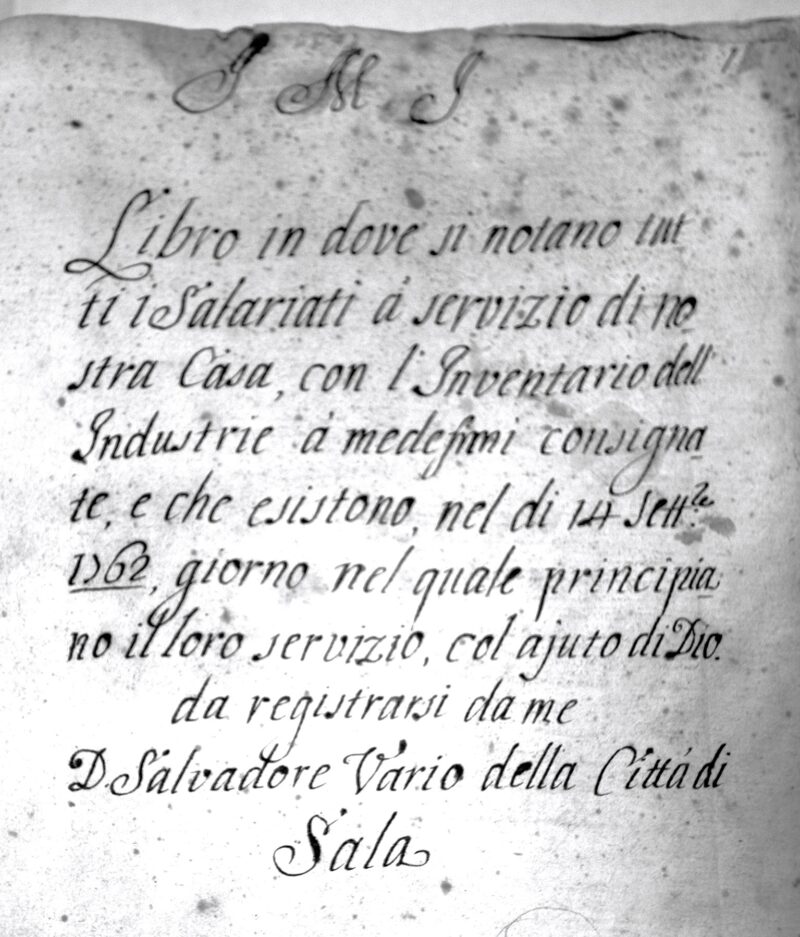 J M J
Libro in dove si notano tut
ti i Salariati à servizio di no
stra Casa, con l'Inventario dell'
Industrie à medesimi consigna
te, e che esistono, nel di 14 Sett.re
1762, giorno nel quale principia
no il loro servizio, col ajuto di Dio.
da registrarsi da me
D. Salvadore Vario della Città di
Sala